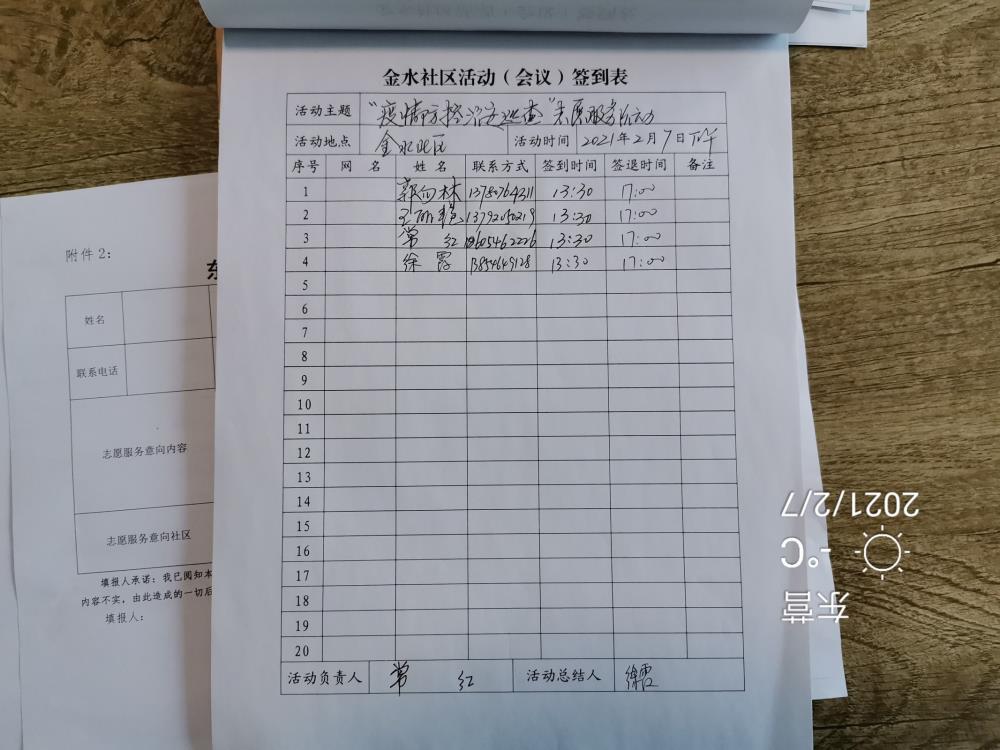 金水社区活动（会议）签到表
活动主题 “疫情防控治安巡查”志愿服务活动
活动地点 金水北区 活动时间 2021年2月7日下午
序号 网名 姓名 联系方式 签到时间 签退时间 备注
1 郭向林 13780764311 13:30 17:00
2 王丽艳 13792050219 13:30 17:00
3 常红 18605462226 13:30 17:00
4 徐霞 13854649128 13:30 17:00
5
6
7
8
9
10
11
12
13
14
15
16
17
18
19
20
活动负责人 常红 活动总结人 徐霞
附件2：
东
姓名
联系电话
志愿服务意向内容
志愿服务意向社区
填报人承诺：我已阅知本
内容不实，由此造成的一切后
填报人：
2021/2/7
-°C
东营